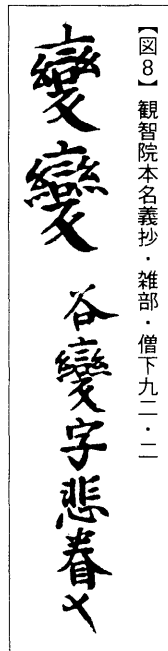 【図8】観智院本名義抄・雑部・僧下九二・二
變變谷變字悲眷メ